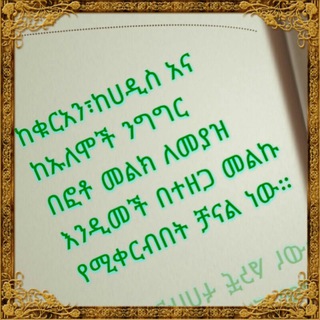 ከቁርአን፣ከሀዲስ እና
ከኡለሞች ንግግር
በፎቶ መልክ ለመያዝ
እንዲመች በተዘጋ መልኩ
የሚቀርብበት ቻናል ነው።